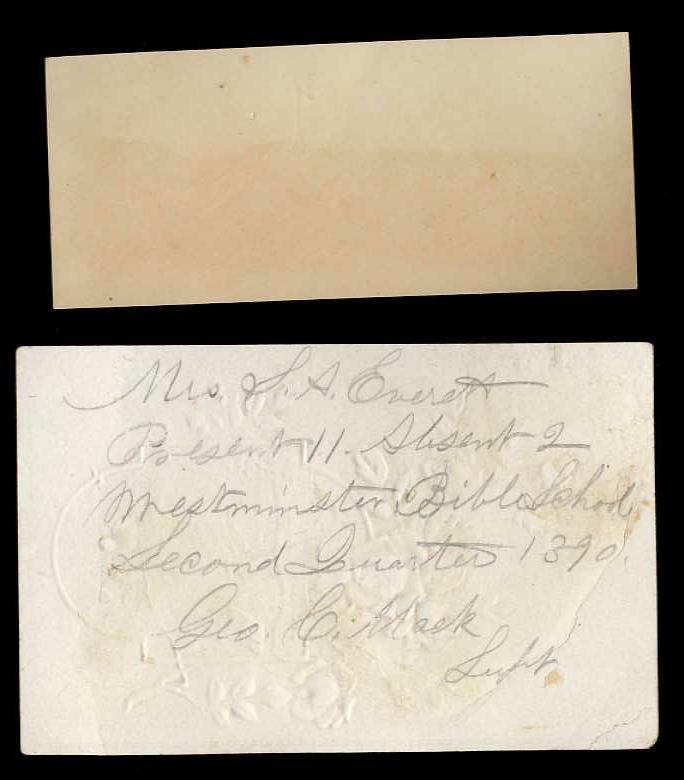 Mrs. S. A. Everett
Present 11. Absent 2
Westminster Bible School
Second Quarter 1890.
Geo. C. Mack
Supt.